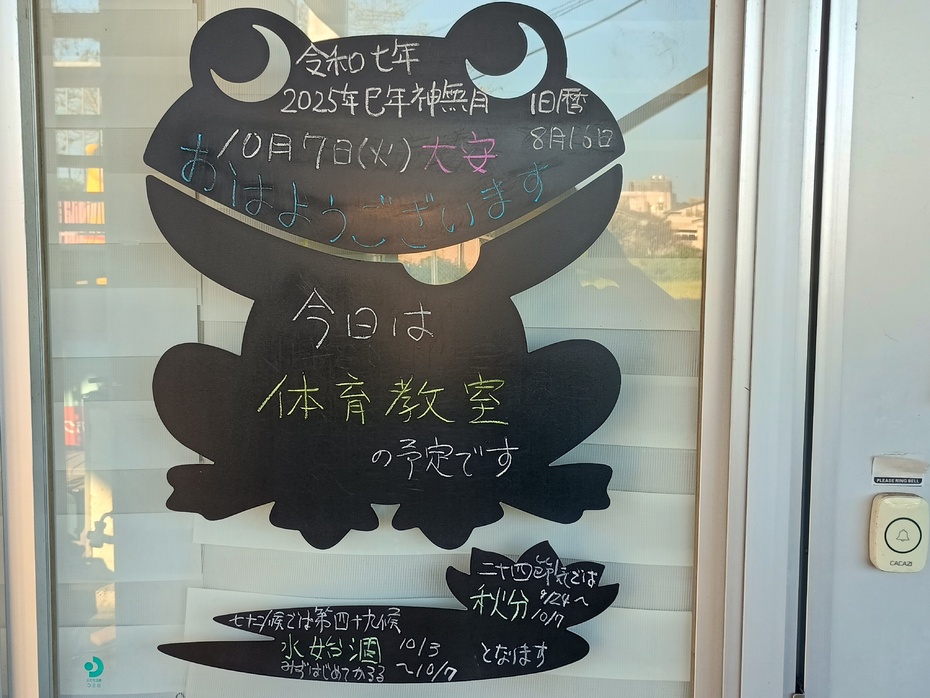 令和七年
2025年巳年神無月 旧暦
10月7日(火)大安 8月16日
おはようございます
今日は
体育教室
の予定です
二十四節気では
秋分 9/24〜
10/7
七十二候では第四十九候
水始涸 10/3
みずはじめてかるる 〜10/7 となります
PLEASE RING BELL
CACAZI